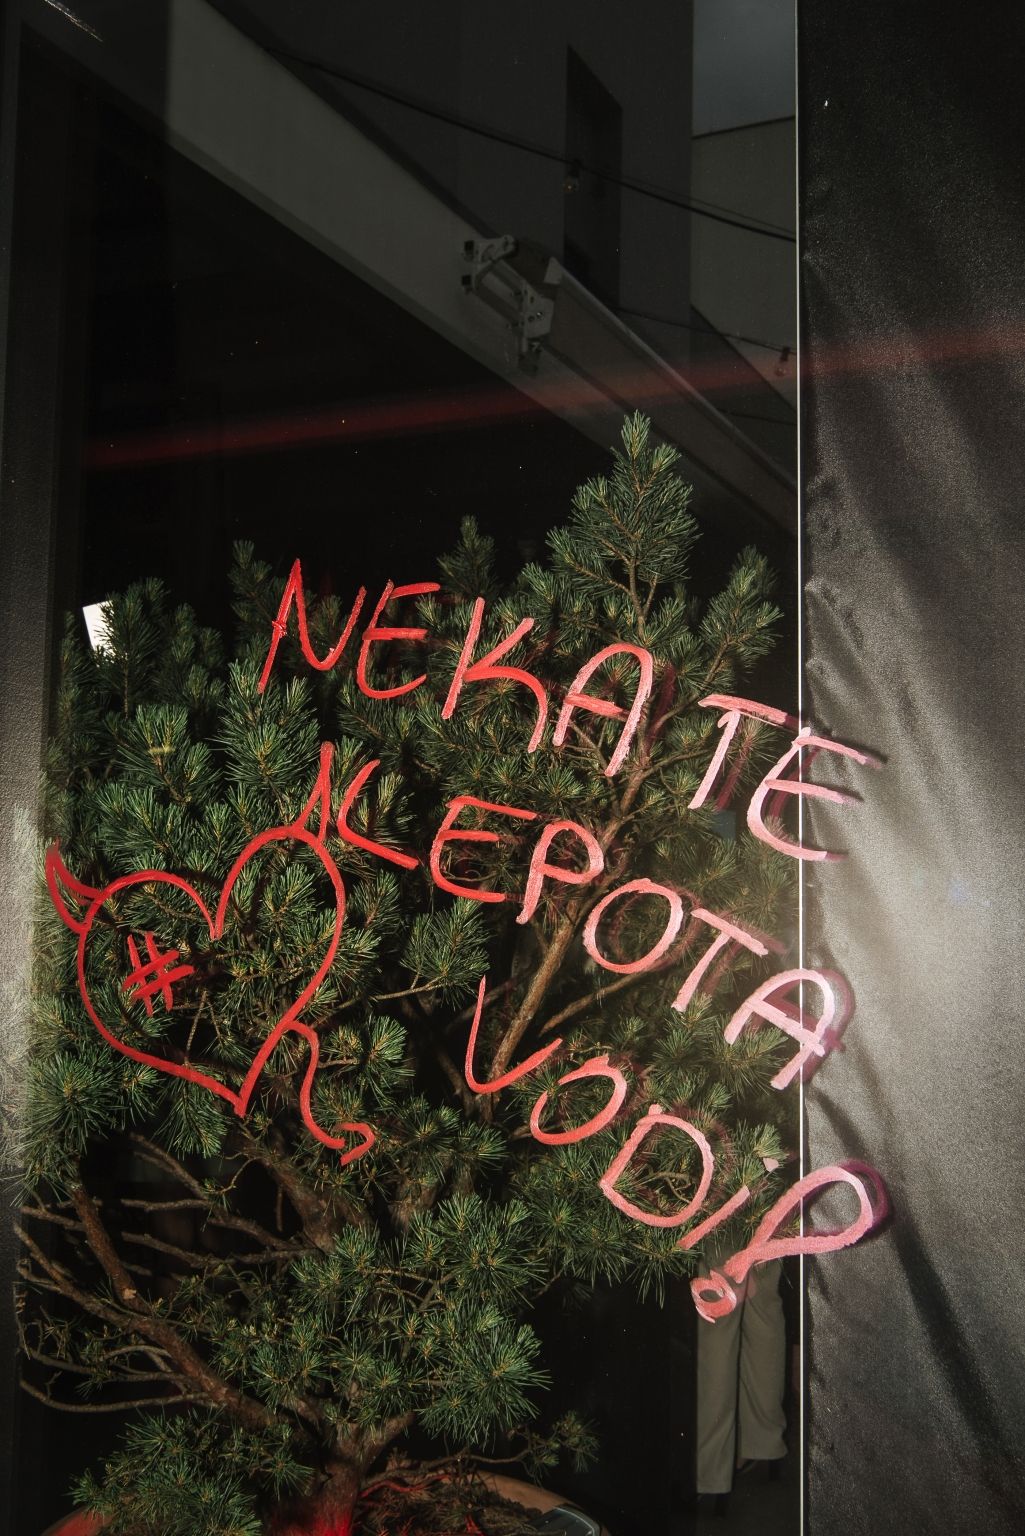 NEKA TE
LEPOTA
VODI!
#